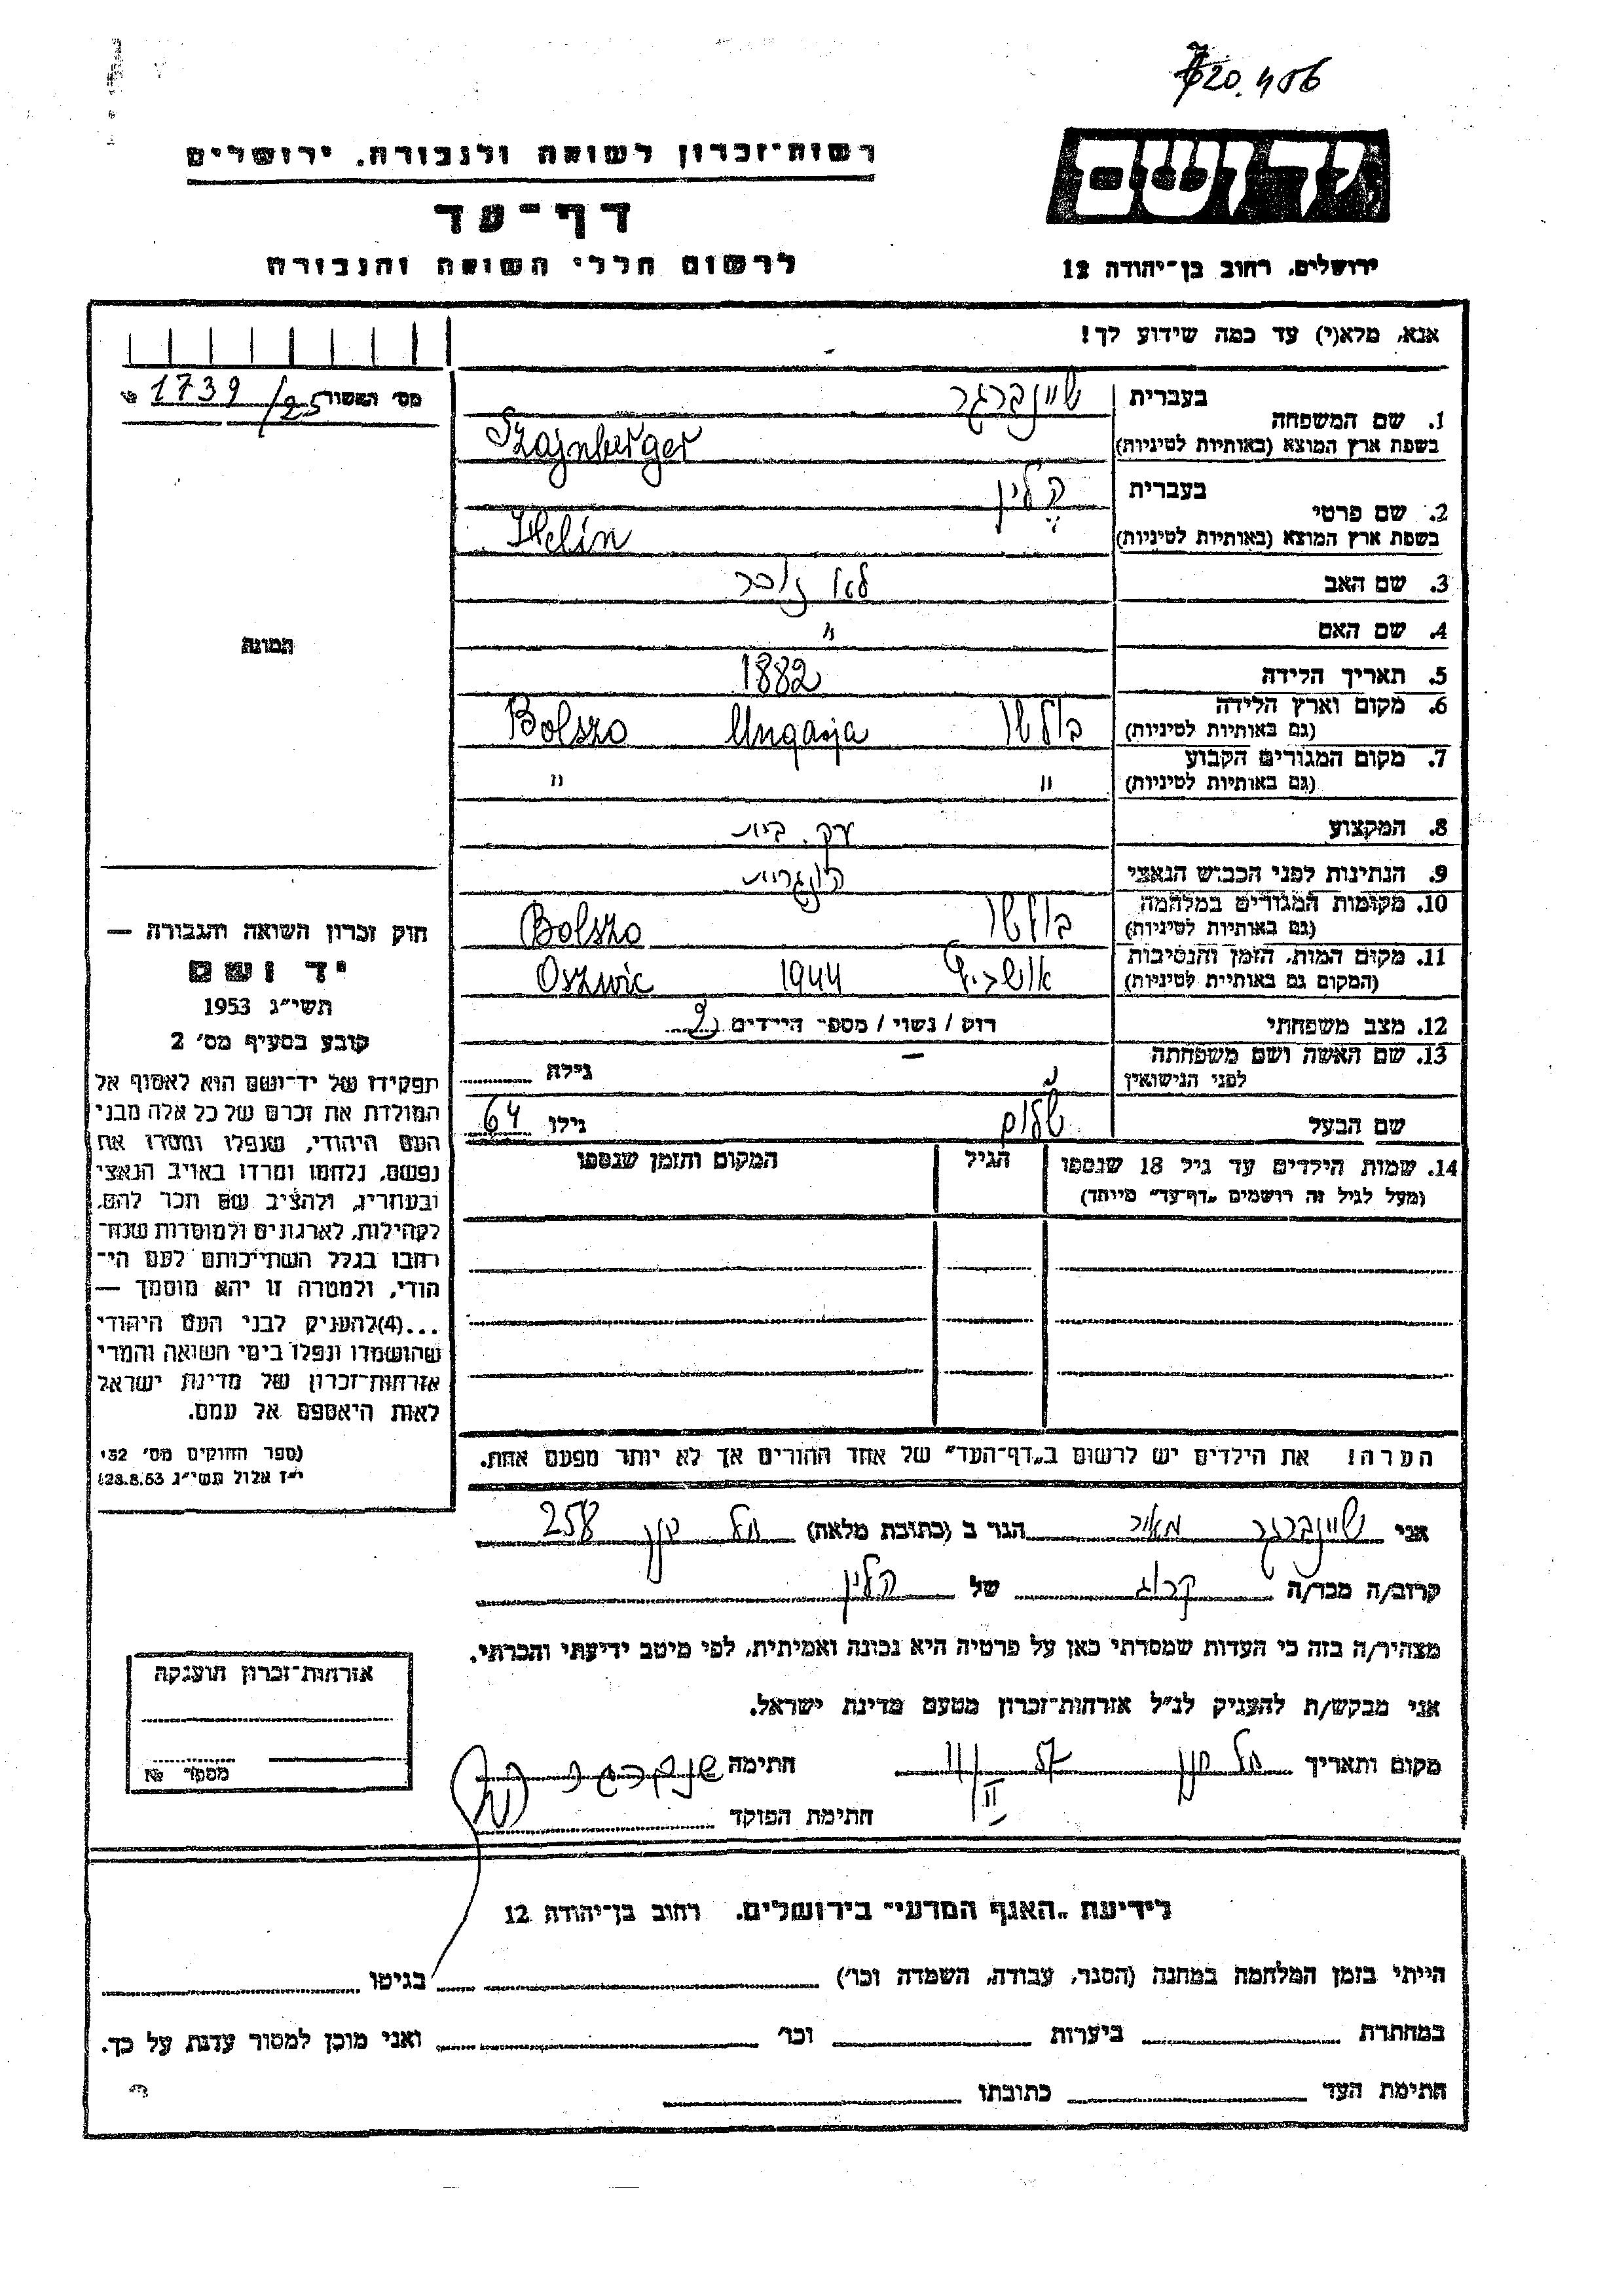 720.406
רשות־זכרון לשואה ולגבורה. ירושלים
יד ושם
דף־עד
לרשום חללי השואה והגבורה
ירושלים, רחוב בן־יהודה 12
אנא, מלא(י) עד כמה שידוע לך!
מס' האשור 1739/25
1. שם המשפחה בעברית שיינברגר
בשפת ארץ המוצא (באותיות לטיניות) Szajnberger
2. שם פרטי בעברית הלין
בשפת ארץ המוצא (באותיות לטיניות) Helin
3. שם האב לא זוכר
4. שם האם "
התמונה
5. תאריך הלידה 1882
6. מקום וארץ הלידה
(גם באותיות לטיניות) בולשו Ungarja Bolszo
7. מקום המגורים הקבוע
(גם באותיות לטיניות) " "
8. המקצוע עק. בית
9. הנתינות לפני הכבוש הנאצי הונגרית
10. מקומות המגורים במלחמה
(גם באותיות לטיניות) בולשו Bolszo
11. מקום המות, הזמן והנסיבות
(המקום גם באותיות לטיניות) 1944 Oszwic
12. מצב משפחתי רוק / נשוי / מספר הילדים 2
13. שם האשה ושם משפחתה
לפני הנישואין גילה
שם הבעל שלום גילו 64
14. שמות הילדים עד גיל 18 שנספו הגיל המקום והזמן שנספו
(מעל לגיל זה רושמים „דף־עד" מיוחד)
חוק זכרון השואה והגבורה —
יד ושם
תשי"ג 1953
קובע בסעיף מס' 2
תפקידו של יד־ושם הוא לאסוף אל
המולדת את זכרם של כל אלה מבני
העם היהודי, שנפלו ומסרו את
נפשם, נלחמו ומרדו באויב הנאצי
ובעוזריו, ולהציב שם וזכר להם,
לקהילות, לארגונים ולמוסדות שנח־
רבו בגלל השתייכותם לעם הי־
הודי, ולמטרה זו יהא מוסמך —
...(4)להעניק לבני העם היהודי
שהושמדו ונפלו בימי השואה והמרי
אזרחות־זכרון של מדינת ישראל
לאות היאספם אל עמם.
(ספר החוקים מס' 132
י"ז אלול תשי"ג 28.8.53)
הערה! את הילדים יש לרשום ב„דף־העד" של אחד ההורים אך לא יותר מפעם אחת.
אני שיינברגר מאיר הגר ב (כתובת מלאה) 258
קרוב/ה מכר/ה קרוב של הלין
מצהיר/ה בזה כי העדות שמסרתי כאן על פרטיה היא נכונה ואמיתית, לפי מיטב ידיעתי והכרתי.
אני מבקש/ת להעניק לנ"ל אזרחות־זכרון מטעם מדינת ישראל.
מקום ותאריך חתימה
חתימת הפוקד
אזרחות־זכרון הוענקה
מספר №
לידיעת „האגף המדעי" בירושלים. רחוב בן־יהודה 12
הייתי בזמן המלחמה במחנה (הסגר, עבודה, השמדה וכו') בגיטו
במחתרת ביערות וכו' ואני מוכן למסור עדות על כך.
חתימת העד כתובתו